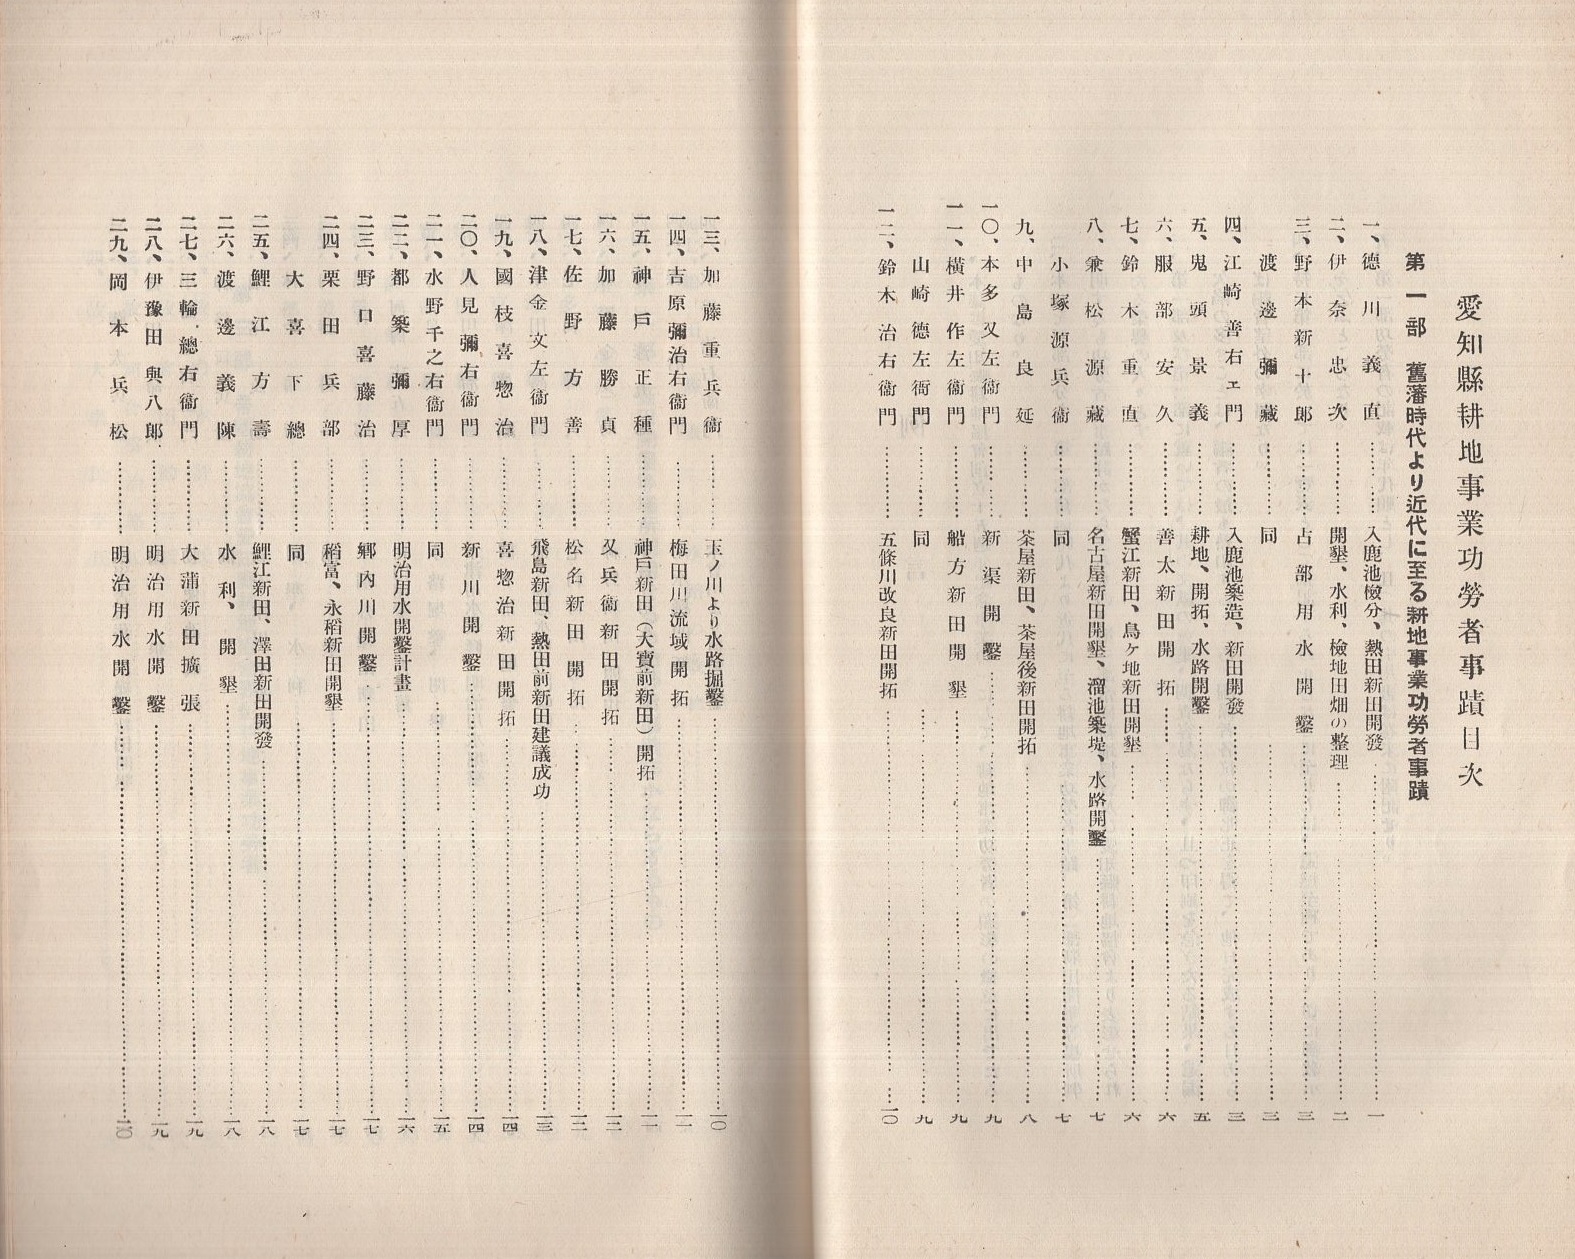 愛知縣耕地事業功勞者事蹟目次
第一部 舊藩時代より近代に至る耕地事業功勞者事蹟
一、德川義直…………入鹿池檢分、熱田新田開發…………一
二、伊奈忠次…………開墾、水利、檢地田畑の整理…………二
三、野本新十郎…………占部用水開鑿…………三
渡邊彌藏…………同…………三
四、江崎善右ェ門…………入鹿池築造、新田開發…………三
五、鬼頭景義…………耕地、開拓、水路開鑿…………五
六、服部安久…………善太新田開拓…………六
七、鈴木重直…………蟹江新田、鳥ヶ地新田開墾…………六
八、兼松源藏…………名古屋新田開墾、溜池築堤、水路開鑿…………七
小塚源兵衞…………同…………七
九、中島良延…………茶屋新田、茶屋後新田開拓…………八
一〇、本多又左衞門…………新渠開鑿…………九
一一、横井作左衞門…………船方新田開墾…………九
山崎德左衞門…………同…………九
一二、鈴木治右衞門…………五條川改良新田開拓…………一〇
一三、加藤重兵衞…………玉ノ川より水路掘鑿…………一〇
一四、吉原彌治右衞門…………梅田川流域開拓…………一一
一五、神戸正種…………神戸新田(大寶前新田)開拓…………一一
一六、加藤勝貞…………又兵衞新田開拓…………一二
一七、佐野方善…………松名新田開拓…………一二
一八、津金文左衞門…………飛島新田、熱田前新田建議成功…………一三
一九、國枝喜惣治…………喜惣治新田開拓…………一四
二〇、人見彌右衞門…………新川開鑿…………一四
二一、水野千之右衞門…………同…………一五
二二、都築彌厚…………明治用水開鑿計畫…………一六
二三、野口喜藤治…………鄕內川開鑿…………一七
二四、栗田兵部…………稻富、永稻新田開墾…………一七
大喜下總…………同…………一七
二五、鯉江方壽…………鯉江新田、澤田新田開發…………一八
二六、渡邊義陳…………水利、開墾…………一八
二七、三輪總右衞門…………大蒲新田擴張…………一九
二八、伊豫田與八郎…………明治用水開鑿…………一九
二九、岡本兵松…………明治用水開鑿…………二〇